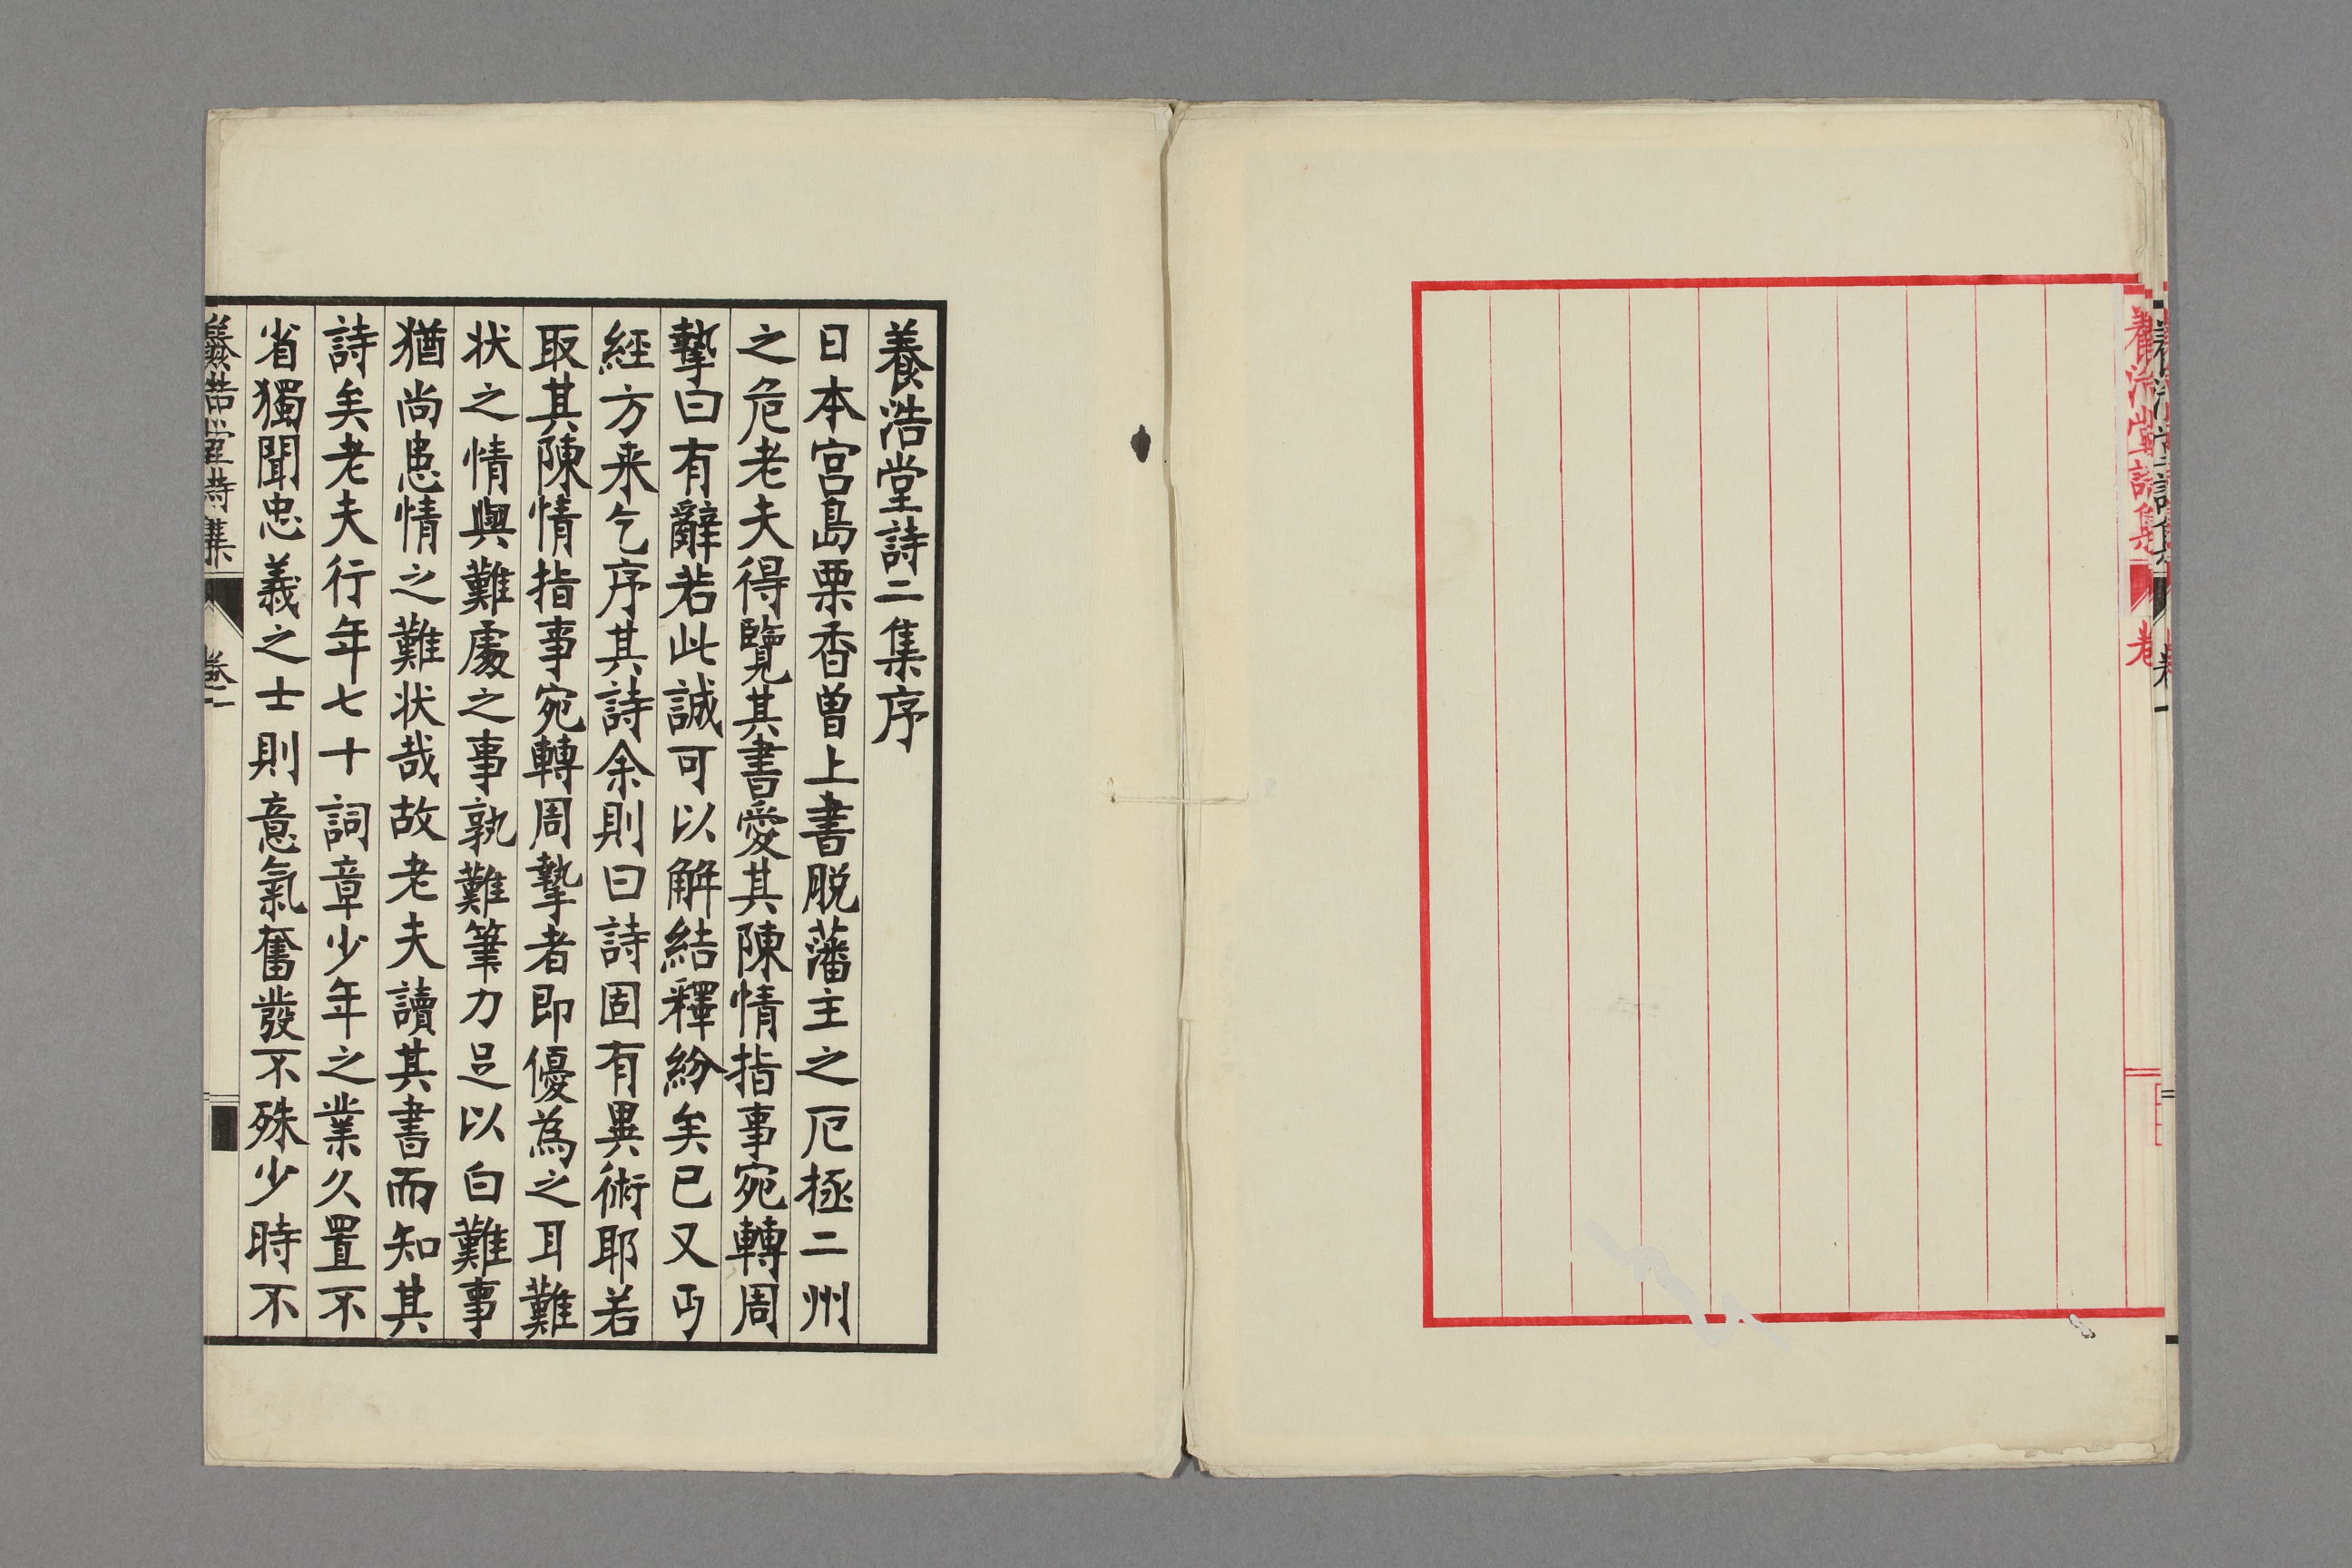 養浩堂詩集
卷
養浩堂詩集
卷一
養浩堂詩二集序
日本宮島栗香曽上書脱藩主之厄拯二州
之危老夫得覽其書愛其陳情指事宛轉周
摯曰有辭若此誠可以解結釋紛矣已又丐
經方来乞序其詩余則曰詩固有異術耶若
取其陳情指事宛轉周摯者即優為之耳難
状之情與難處之事孰難筆力足以白難事
猶尚患情之難状哉故老夫讀其書而知其
詩矣老夫行年七十詞章少年之業久置不
省獨聞忠義之士則意氣奮發不殊少時不
養浩堂詩集
卷一